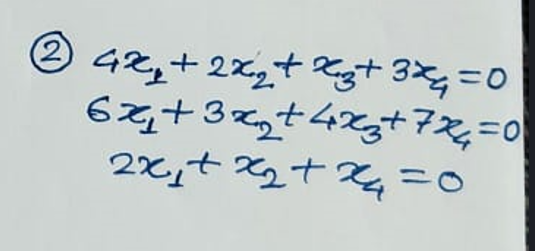 ② 4x₁ + 2x₂ + x₃ + 3x₄ = 0
6x₁ + 3x₂ + 4x₃ + 7x₄ = 0
2x₁ + x₂ + x₄ = 0